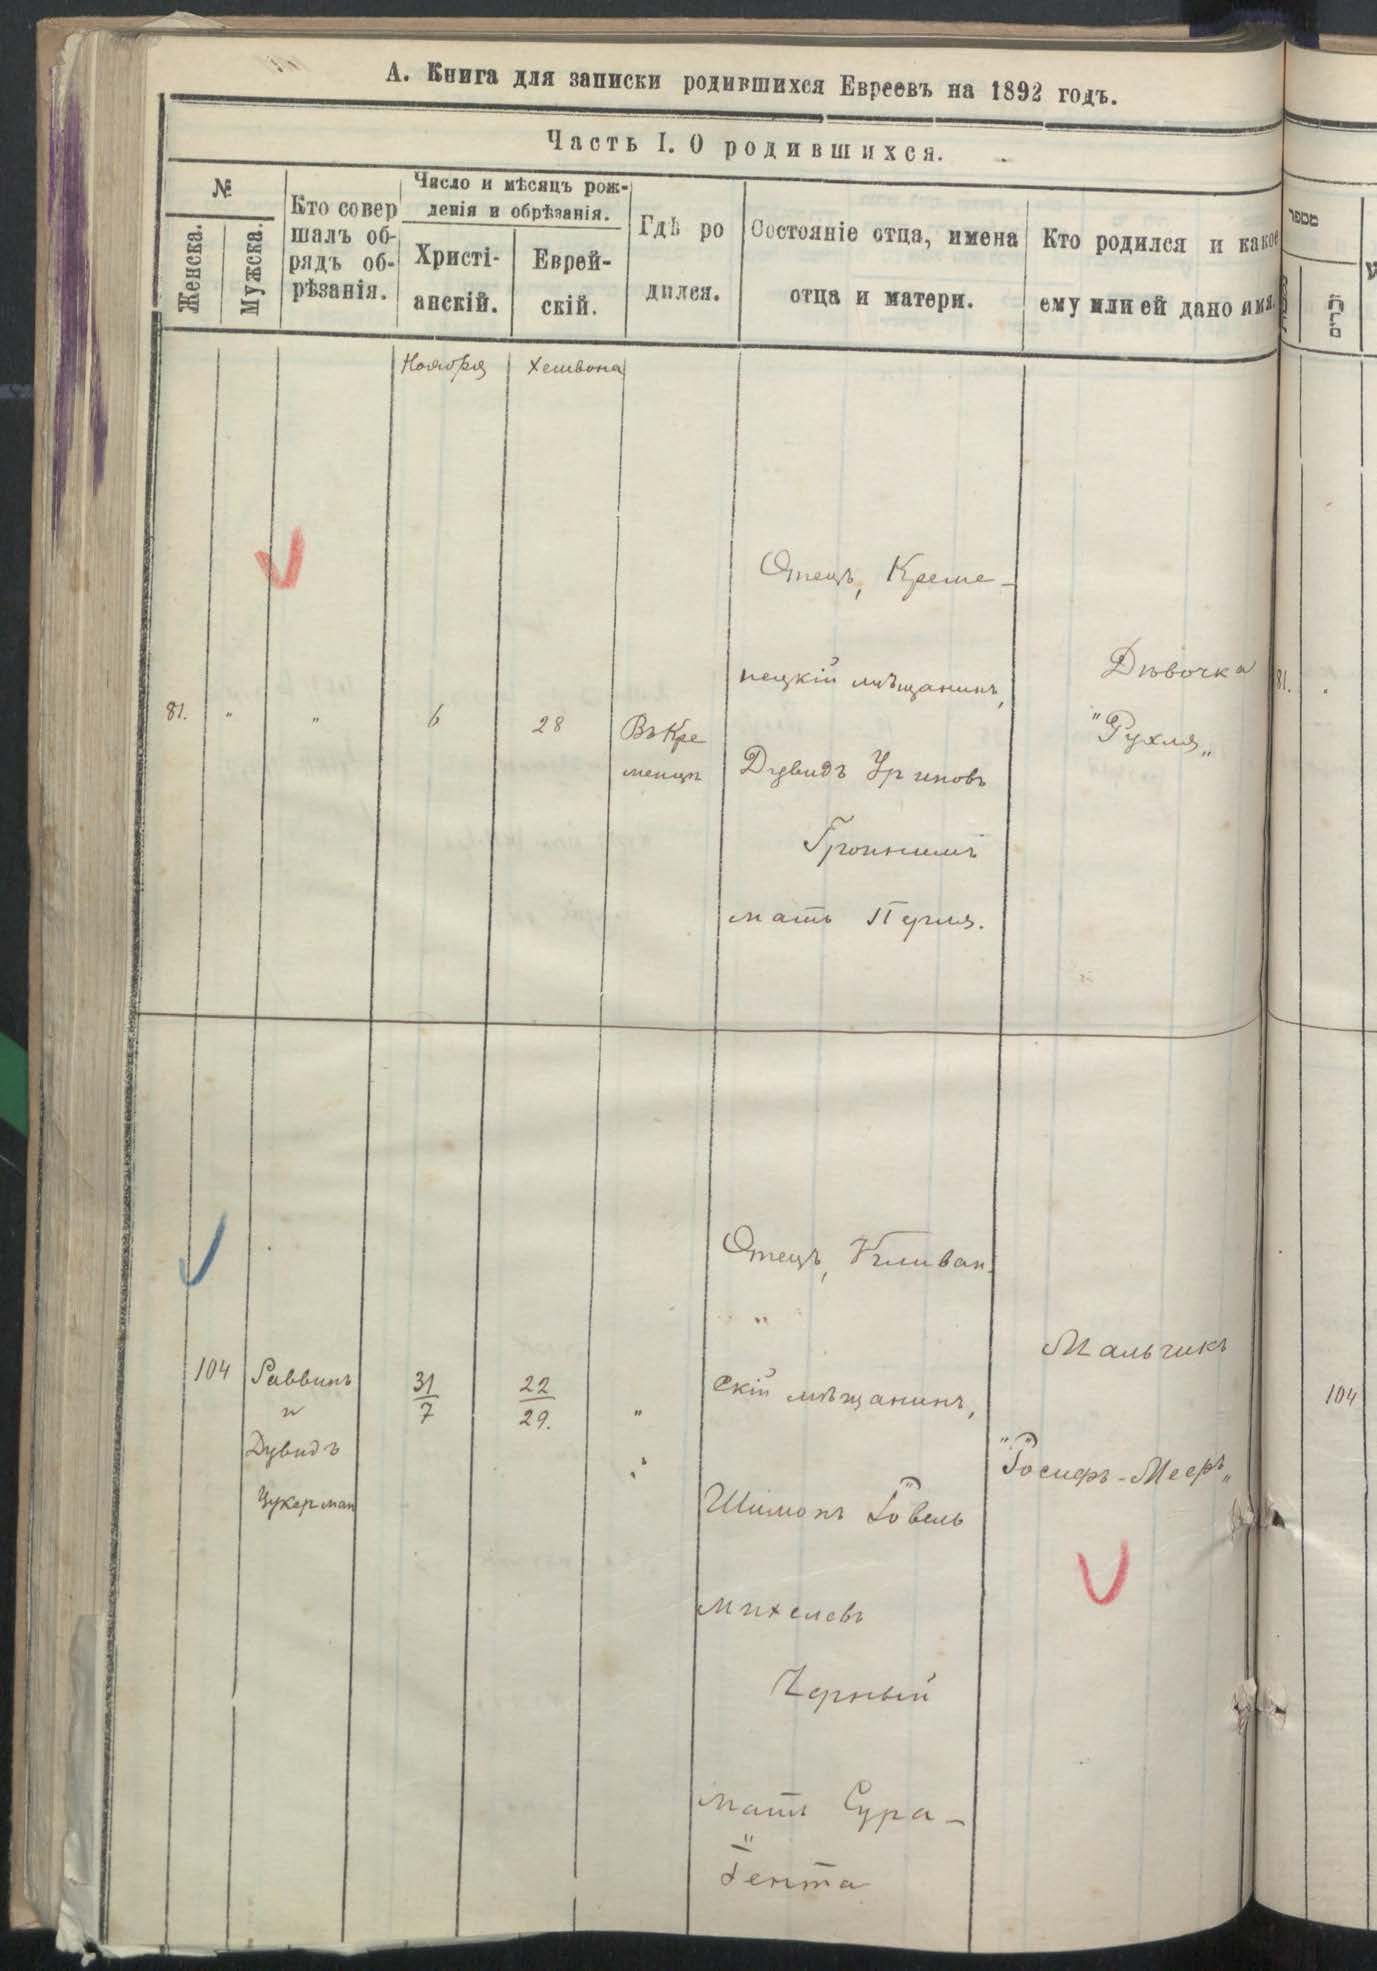 А. Книга для записки родившихся Евреевъ на 1892 годъ.
Часть I. О родившихся.
№
Женска.
Мужска.
Кто совер
шалъ об-
рядъ об-
рѣзанія.
Число и мѣсяцъ рож-
денія и обрѣзанія.
Христі-
анскій.
Еврей-
скій.
Гдѣ ро
дился.
Состояніе отца, имена
отца и матери.
Кто родился и какое
ему или ей дано имя.
מספר
זכרים
Ноября
Хешвона
81. " "
6
28
Въ Кре
менцѣ
Отецъ, Креме-
нецкій мѣщанинъ,
Дувидъ
мать
Дѣвочка
"Рухля"
81. "
104
Раввинъ
и
Дувидъ
Цукерман
31
7
22
29.
"
"
Отецъ,
скій мѣщанинъ,
Шимонъ Іовель
Михелевъ
Черный
мать Сура-
Іента
Мальчикъ
"Іосифъ-Мееръ"
104